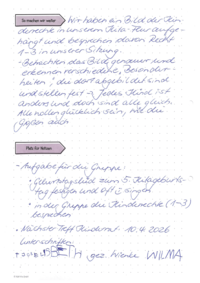 So machen wir weiter
Wir haben ein Bild der Kin-
derrechte in unserem Kita-Flur aufge-
hängt und besprechen daran Recht
1-3 in unserer Sitzung.
- Betrachten das Bild genauer und
erkennen verschiedene, Besonder-
heiten, die dort abgebildet sind
und stellen fest → Jedes Kind ist
anders und doch sind alle gleich
Alle wollen glücklich sein, wie die
Großen auch
Platz für Notizen
- Aufgabe für die Gruppe:
• Geburtstagslied zum 5. Kitageburts-
tag festigen und oft singen
• in der Gruppe die Kinderrechte (1-3)
besprechen
- Nächster Treff Kinderrat 10.4.2026
Unterschriften:
gez. Wienke WILMA